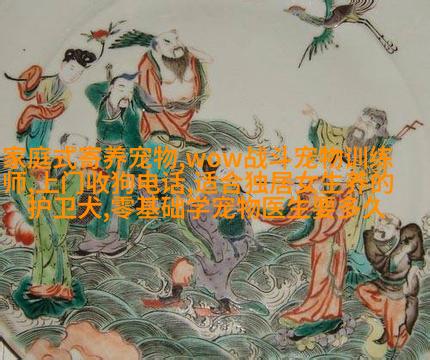 家庭式寄养宠物,wow战斗宠物训练
师,上门收狗电话,适合独居女生养的
护卫犬,零基础学宠物医生要多久